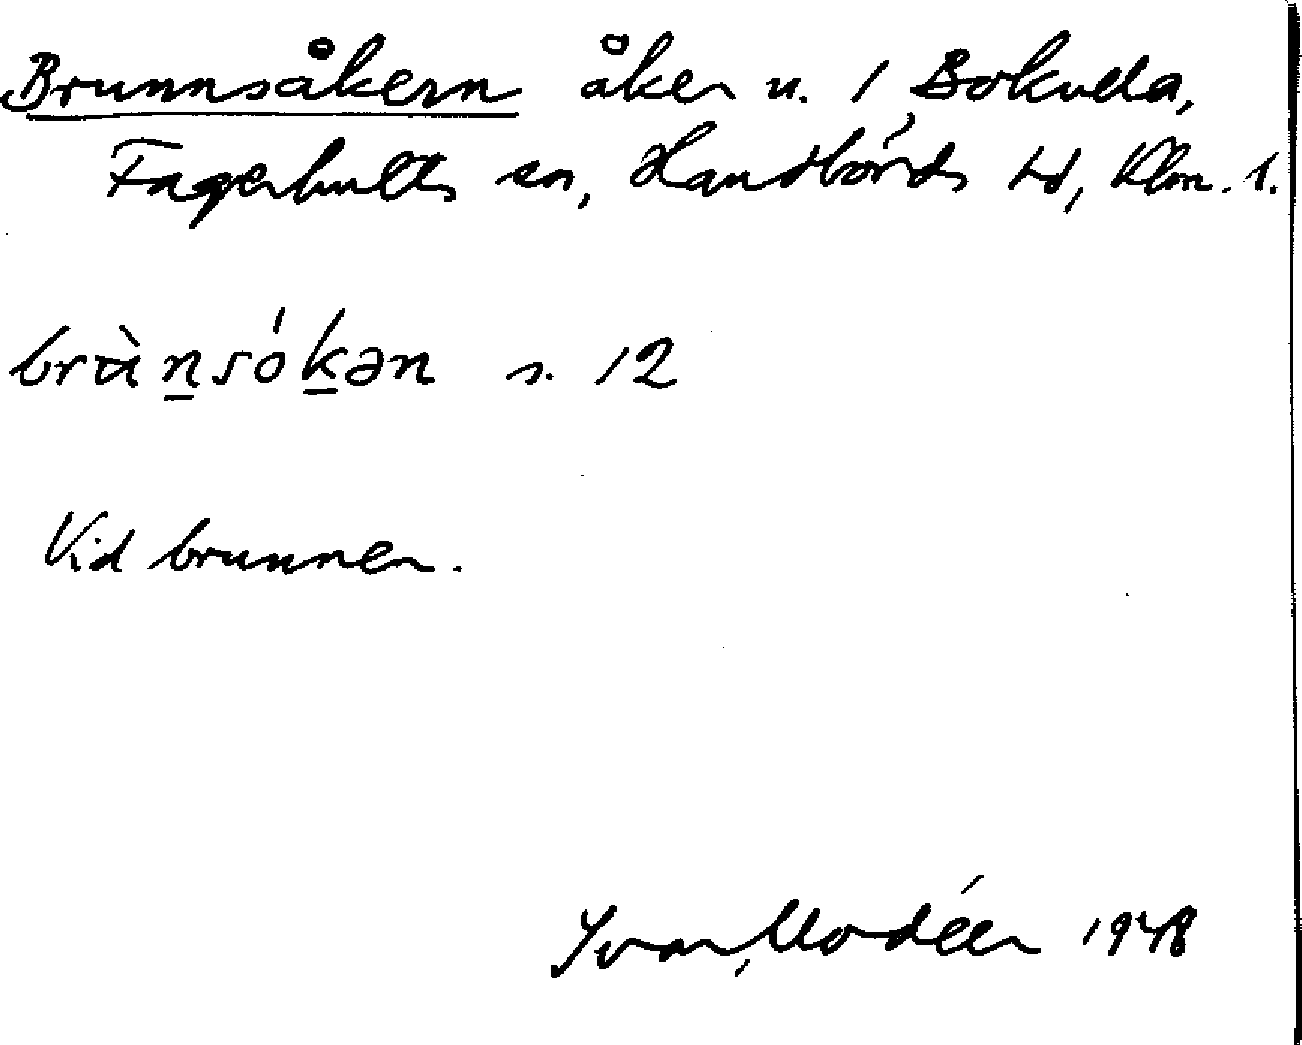 Brunnsåkern åker n. 1 Bokulla,
Fagerhults sn, Handbörds hd, Klm. l.
brùn̲sók̲ən s. 12
Vid brunnen.
Ivar Modéer 1948